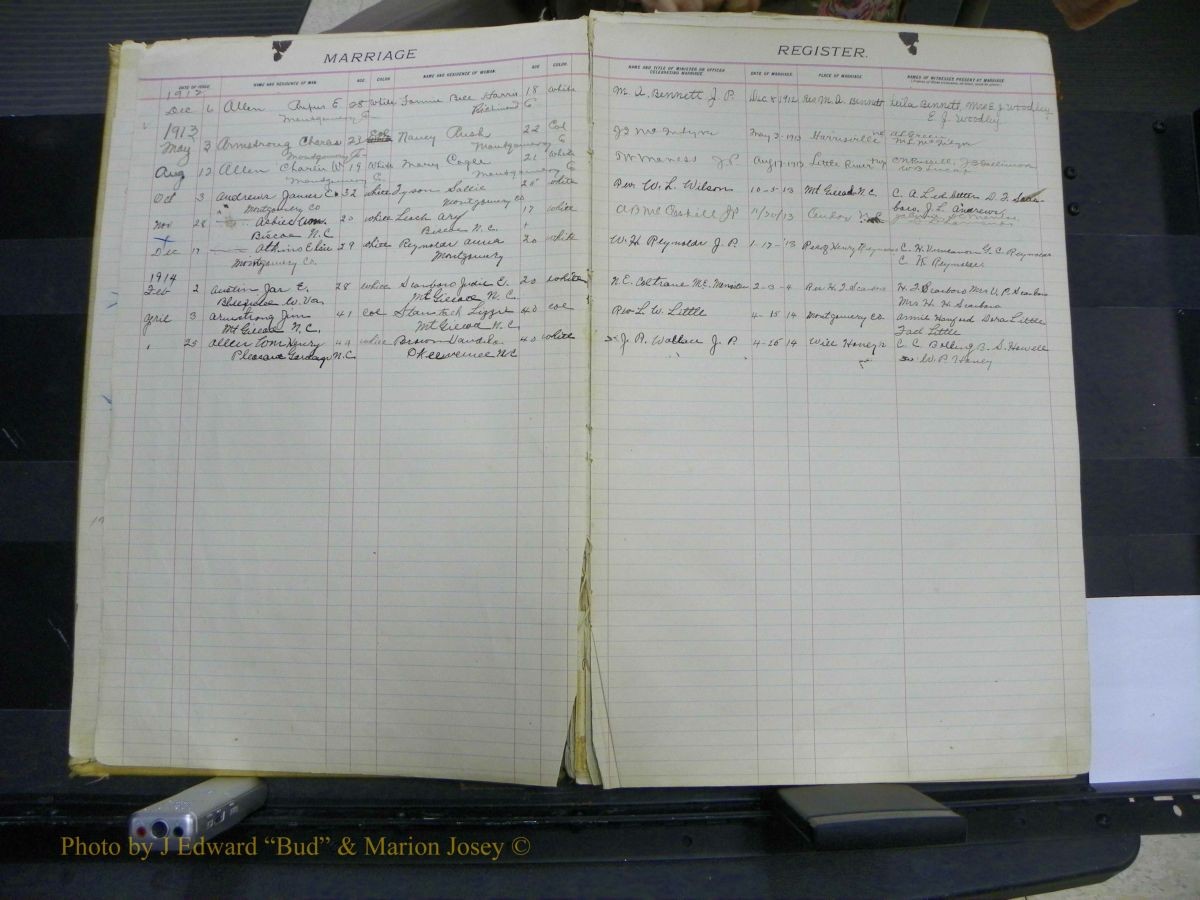 MARRIAGE
REGISTER.
DATE OF ISSUE
NAME AND RESIDENCE OF MAN
AGE
COLOR
NAME AND RESIDENCE OF WOMAN
AGE
COLOR
NAME AND TITLE OF MINISTER OR OFFICER CELEBRATING MARRIAGE
DATE OF MARRIAGE
PLACE OF MARRIAGE
NAMES OF WITNESSES PRESENT AT MARRIAGE
1912
Dec 6 Allen Rufus E. 28 White Fannie Bell Harris 18 white M. A. Bennett J. P. Dec 8 1912 Res M. A. Bennett Leila Bennett, Mrs E J Woodley
Montgomery C Richmond C E. J. Woodley
1913
May 3 Armstrong Charas 23 Col Nancy Rush 22 Col May 3-1913 Harrisville
Montgomery C Montgomery C
Aug 12 Allen Charles W 19 White Mary Cogle 21 white W Maness J P Aug 17 1913 Little River Twp
Montgomery C Montgomery C
Oct 3 Andrews James E. 32 white Tyson Sallie 25 white Rev. W. L. Wilson 10-5 13 Mt Gilead N.C. C. A. Ledbetter D. F.
Montgomery Co Montgomery Co J. L. Andrews
Nov 28 20 white Leach Ary 17 white A B McCaskill J P 11/30/13 Candor N.C.
Biscoe N.C Biscoe N.C
Dec 17 Atkins Elias 29 white Reynolds Anna 20 white W. H Reynolds J. P. 1-17-13 Res of Henry Reynolds G. C. Reynolds
Montgomery Co. Montgomery C. K Reynolds
1914
Feb 2 Austin Jas E. 28 white Scarboro Judie E. 20 white N. E. Coltrane M.E. Minister 2-3-4 Res H. F. Scarboro H. F. Scarboro Mrs V. P. Scarboro
W. Va. Mt Gilead N. C. Mrs H. H Scarboro
April 3 Armstrong Jim 41 col Lizzie 40 col Rev L. W. Little 4-15 14 Montgomery Co. Annie Hanford Dora Little
Mt Gilead N. C. Mt Gilead N. C. Little
" 25 Allen Tom Henry 44 white Brown Daudila 40 white J. A. Wallace J. P. 4-26 14 Will Honeyr C. C Bolling B. S. Howell
Pleasant Garden N.C Okeewemee N.C W. P. Honey
Photo by J Edward “Bud” & Marion Josey ©